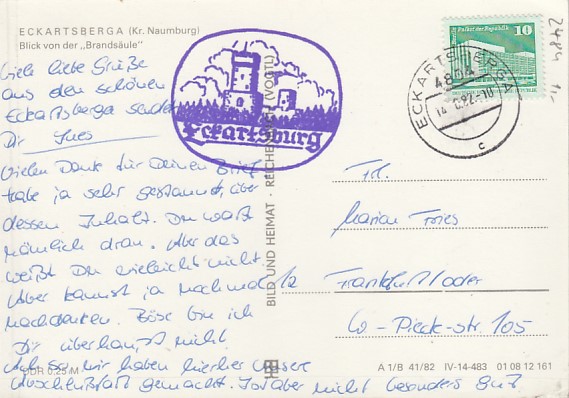 ECKARTSBERGA (Kr. Naumburg)
Blick von der „Brandsäule"
Viele liebe Grüße
aus den schönen
Eckartsberga sendet
Dir Ines
Vielen Dank für Deinen Brief
habe ja sehr gestaunt über
dessen Inhalt. Du warst
nämlich dran. Aber das
weißt Du vielleicht nicht.
Aber kannst ja nochmal
nachdenken. Böse bin ich
Dir überhaupt nicht.
Also wir haben hierher unsere
gemacht. Ist aber nicht besonders gut
DDR 0,25 M
Eckartsburg
BILD UND HEIMAT · REICHENBACH (VOGTL)
Palast der Republik
10
DDR
ECKARTSBERGA
4804
c
Frl.
Marion
Frankfurt/Oder
W-Pieck-str. 105
A 1/B 41/82 IV-14-483 01 08 12 161